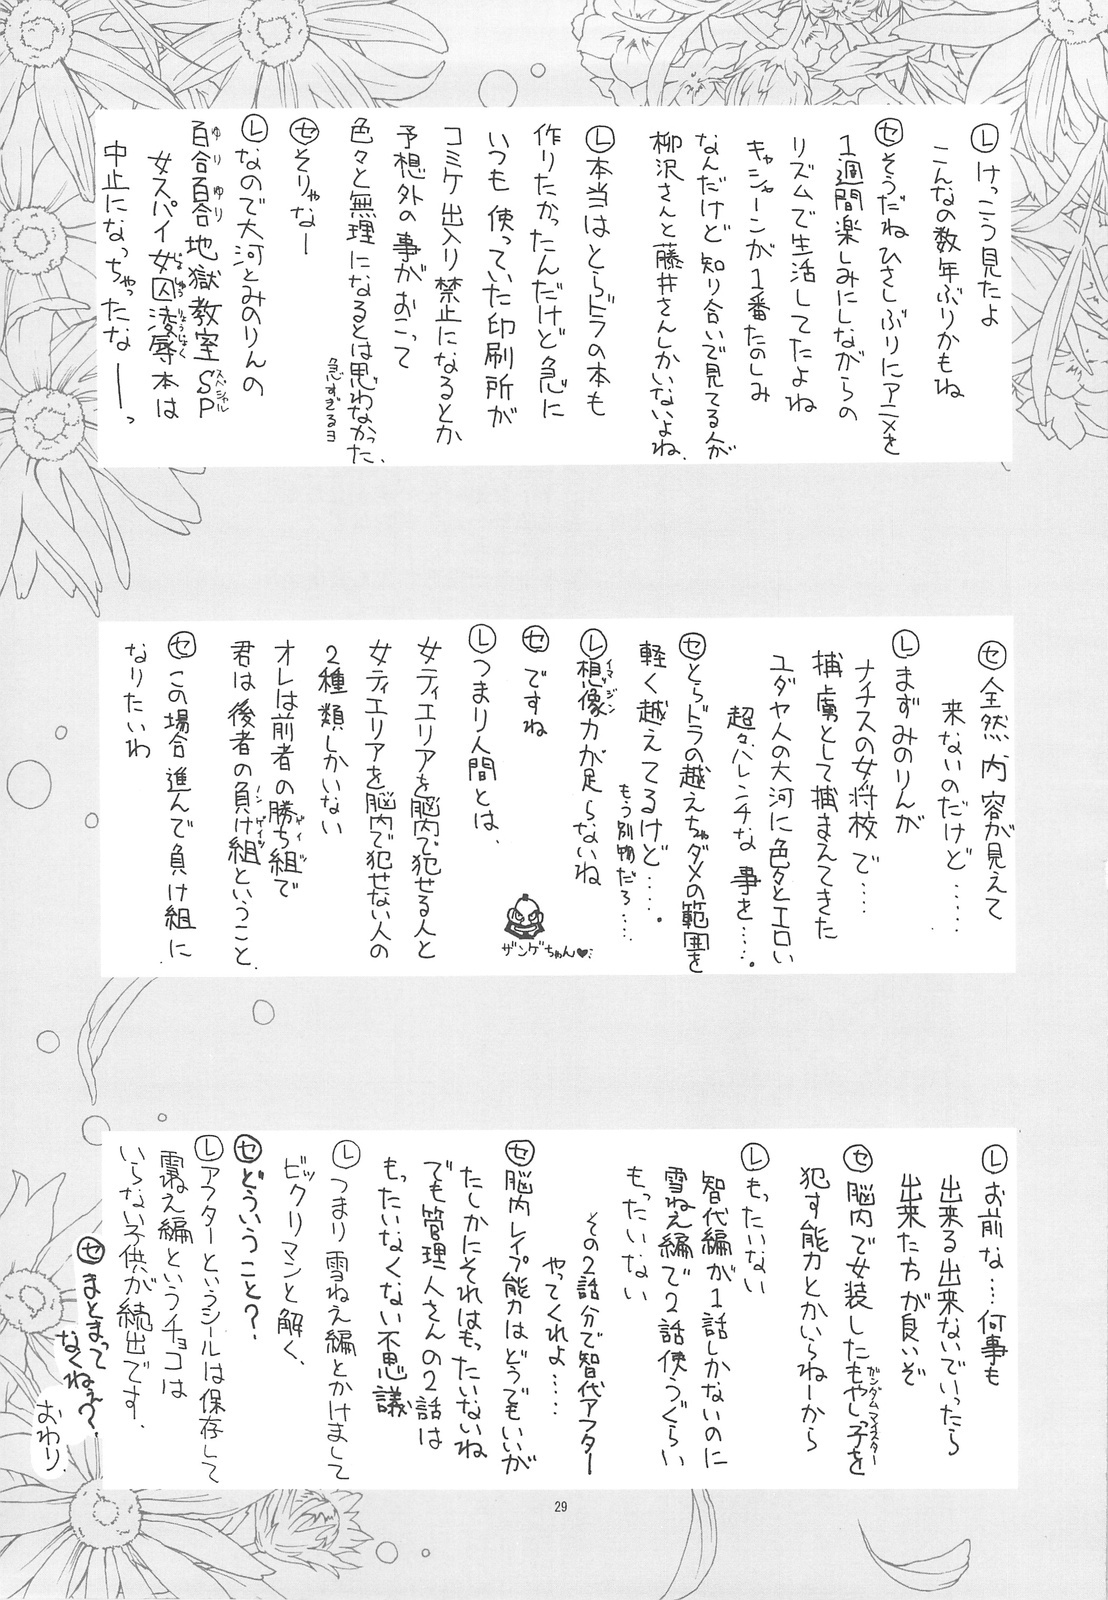 Ⓛけっこう見たよ
こんなの数年ぶりかもね
㋝そうだねひさしぶりにアニメを
1週間楽しみにしながらの
リズムで生活してたよね
キャシャーンが1番たのしみ
なんだけど知り合いで見てる人が
柳沢さんと藤井さんしかいないよね、
Ⓛ本当はとらドラの本も
作りたかったんだけど急に
いつも使っていた印刷所が
コミケ出入り禁止になるとか
予想外の事がおこって
色々と無理になるとは思わなかった、
急すぎるヨ
㋝そりゃなー
Ⓛなので大河とみのりんの
百合百合地獄教室SP
ゆりゆり
スペシャル
女スパイ女囚凌辱本は
じょしゅうりょうじょく
中止になっちゃったなーーっ
㋝全然内容が見えて
来ないのだけど……
Ⓛまずみのりんが
ナチスの女将校で…
捕虜として捕まえてきた
ユダヤ人の大河に色々とエロい
超々ハレンチな事を…。
㋝とらドラの越えちゃダメの範囲を
軽く越えてるけど…。
もう別物だろ……
Ⓛ想像力が足らないね
イマジン
㋝ですね
ザンゲちゃん♥
Ⓛつまり人間とは、
女ティエリアを脳内で犯せる人と
女ティエリアを脳内で犯せない人の
2種類しかいない
オレは前者の勝ち組で
ゲイツ
君は後者の負け組ということ、
ノンゲイツ
㋝この場合進んで負け組に
なりたいわ
Ⓛお前な…何事も
出来る出来ないでいったら
出来た方が良いぞ
㋝脳内で女装したもやしっ子を
ガンダムマイスター
犯す能力とかいらねーから
Ⓛもったいない
智代編が1話しかないのに
雪ねえ編で2話使つぐらい
もったいない
その2話分で智代アフター
やってくれよ……
㋝脳内レイプ能力はどうでもいいが
たしかにそれはもったいないね
でも管理人さんの2話は
もったいなくない不思議
Ⓛつまり雪ねえ編とかけまして
ビックリマンと解く、
㋝どういうこと？
Ⓛアフターというシールは保存して
雪ねえ編というチョコは
いらない子供が続出です、
㋝まとまって
なくねぇ？
おわり、
29